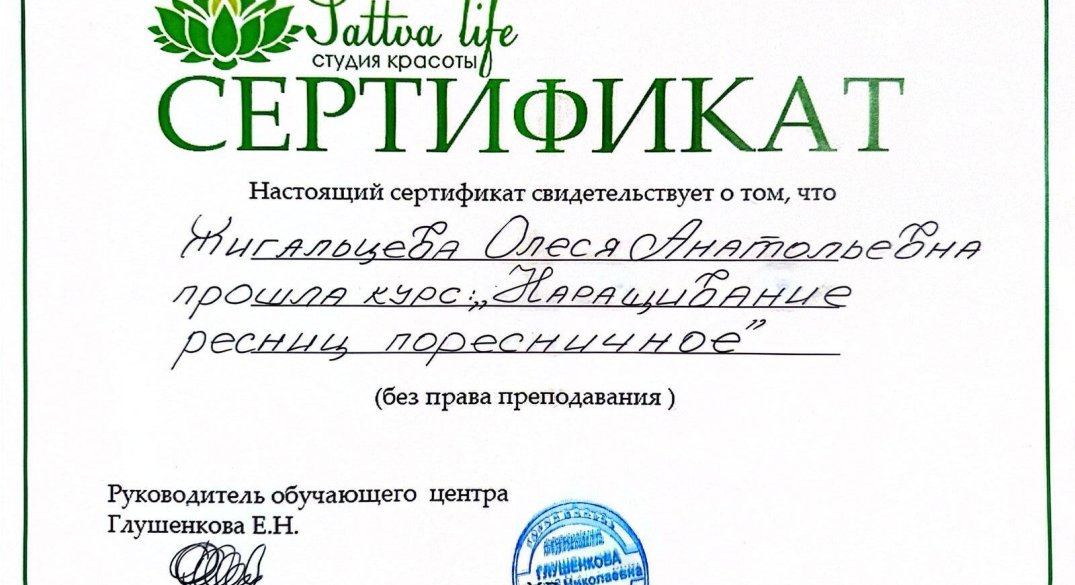 Sattva life
студия красоты
СЕРТИФИКАТ
Настоящий сертификат свидетельствует о том, что
Жигальцева Олеся Анатольевна
прошла курс: „Наращивание
ресниц поресничное”
(без права преподавания )
Руководитель обучающего центра
Глушенкова Е.Н.
ГЛУШЕНКОВА
Николаевна